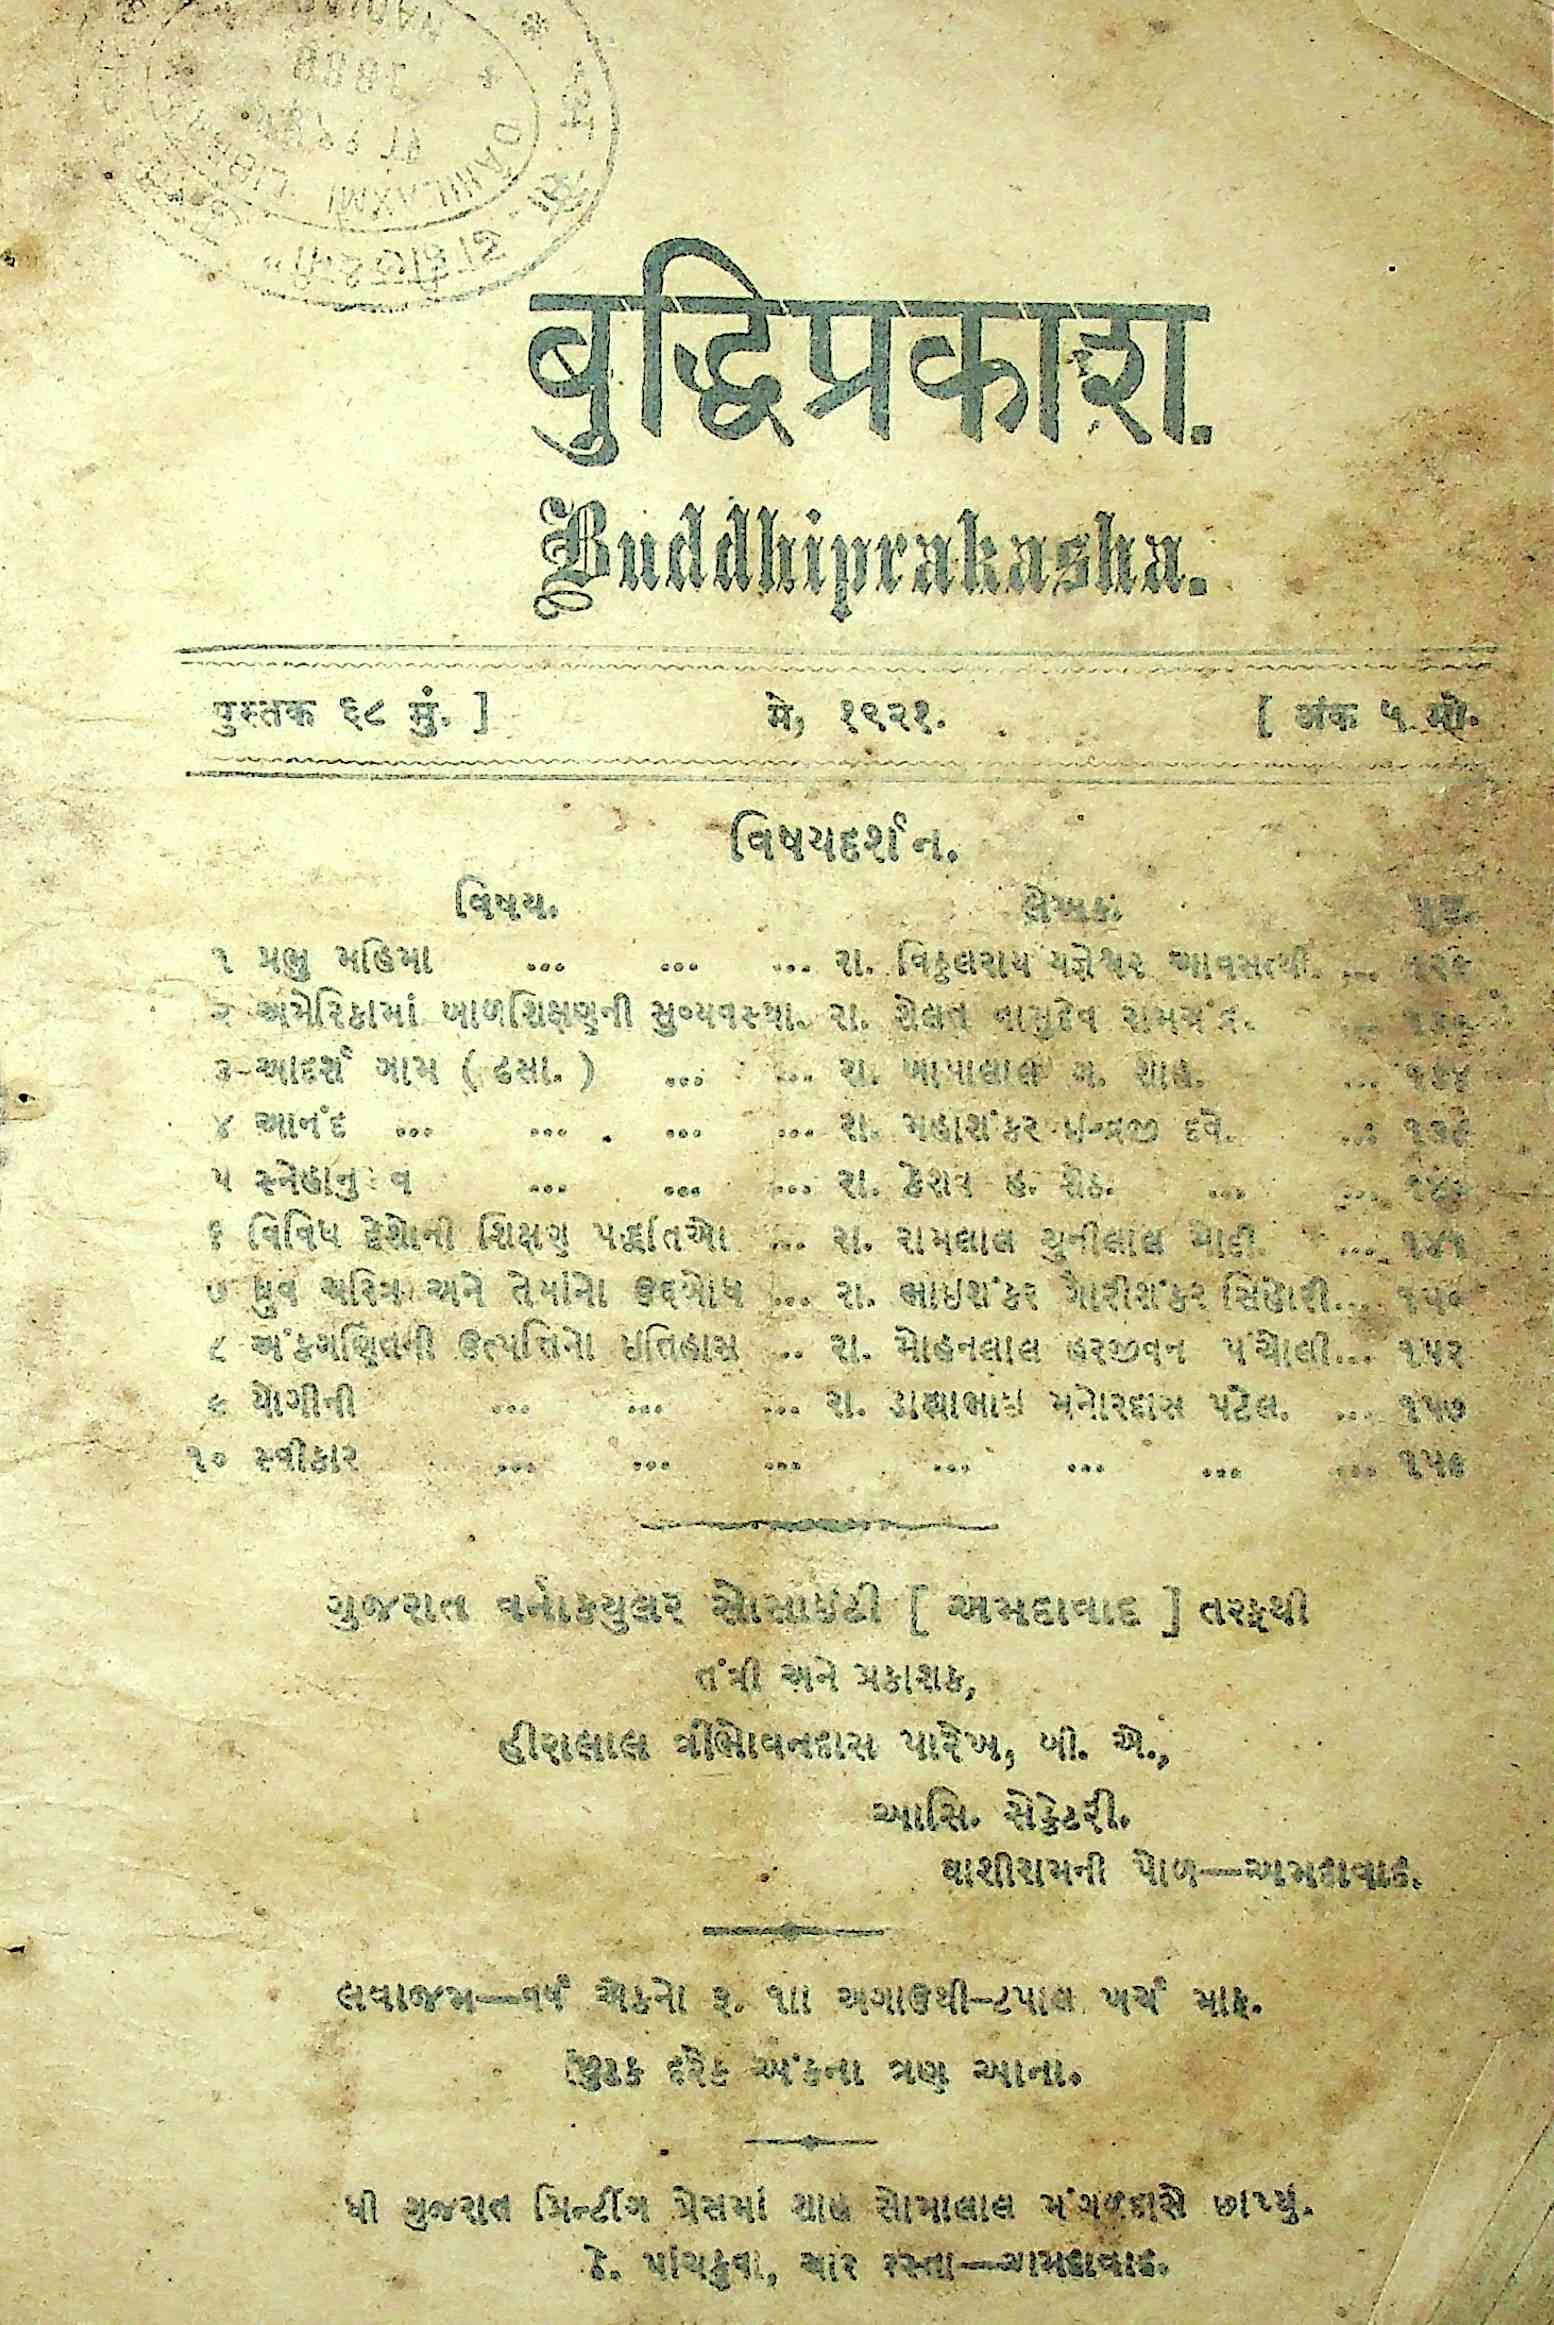 बुद्धिप्रकाश.
Buddhiprakasha.
पुस्तक ६८ मुं. ] मे, १९२१. [ अंक ५ मो.
વિષયદર્શન.
વિષય. લેખક. પૃષ્ઠ.
૧ પ્રભુ મહિમા ... ... ... રા. વિઠ્ઠલરાય યજ્ઞેશ્વર આવસત્થી. ... ૧૨૯
૨ અમેરિકામાં બાળશિક્ષણની સુવ્યવસ્થા. રા. શેલત વાસુદેવ રામચંદ્ર. ...
૩ આદર્શ ગામ ( ઢસા. ) ... ... રા. બાપાલાલ ગ. શાહ. ... ૧૩૪
૪ આનંદ ... ... ... ... રા. મહાશંકર ઇન્દ્રજી દવે. ...
૫ ... ... ... રા. કેશવ હ. શેઠ. ... ...
૬ વિવિધ દેશોની શિક્ષણ પદ્ધતિઓ ... રા. રામલાલ ચુનીલાલ મોદી. ... ૧૪૫
૭ ધ્રુવ ચરિત્ર અને તેમાંનો ઉદ્દબોધ ... રા. ભાઇશંકર ગૌરીશંકર ... ૧૫૦
૮ અંકગણિતની ઉત્પત્તિનો ઇતિહાસ .. રા. મોહનલાલ હરજીવન પંચોલી... ૧૫૨
૯ યોગીની ... ... ... રા. ડાહ્યાભાઇ મનોરદાસ પટેલ. ... ૧૫૭
૧૦ સ્વીકાર ... ... ... ... ... ... ... ૧૫૯
ગુજરાત વર્નાક્યુલર સોસાઇટી [ અમદાવાદ ] તરફથી
તંત્રી અને પ્રકાશક,
હીરાલાલ ત્રીભોવનદાસ પારેખ, બી. એ.,
આસિ. સેક્રેટરી.
ઘાશીરામની પોળ—અમદાવાદ.
લવાજમ—વર્ષ એકનો રૂ. ૧ાા અગાઉથી–ટપાલ ખર્ચ માફ.
છુટક દરેક અંકના ત્રણ આના.
ધી ગુજરાત પ્રિન્ટીંગ પ્રેસમાં શાહ સોમાલાલ મંગળદાસે છાપ્યું.
ઠે. પાંચકુવા, ચાર રસ્તા—અમદાવાદ.